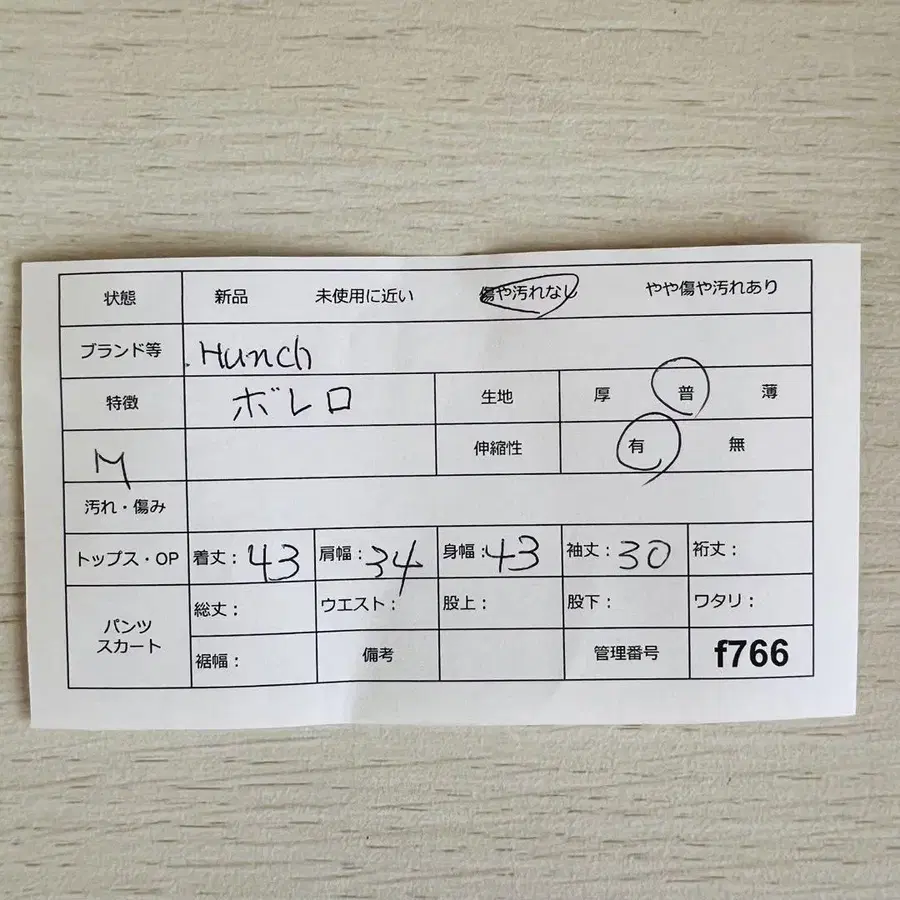 状態 新品 未使用に近い 傷や汚れなし やや傷や汚れあり
ブランド等 Hunch
特徴 ボレロ 生地 厚 普 薄
M 伸縮性 有 無
汚れ・傷み
トップス・OP 着丈：43 肩幅：34 身幅：43 袖丈：30 裄丈：
パンツ スカート 総丈： ウエスト： 股上： 股下： ワタリ：
裾幅： 備考 管理番号 f766